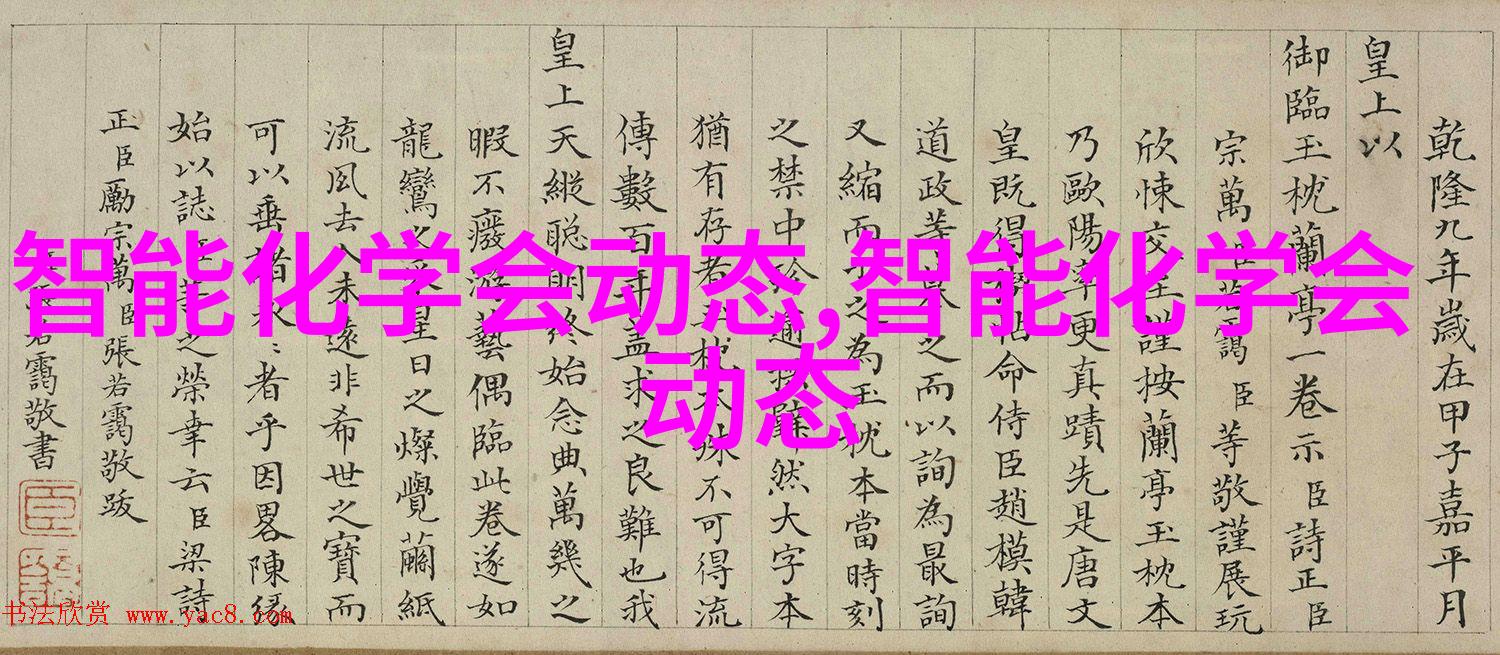 乾隆九年歲在甲子嘉平月
皇上以
御臨玉枕蘭亭一卷示臣詩正臣
宗萬臣若靄臣等敬謹展玩
欣悚交至謹按蘭亭玉枕本
乃歐陽率更真蹟先是唐文
皇既得帖命侍臣趙模韓
道政等之而以詢為最詢
又縮而之為玉枕本當時刻
之禁中然大字本
猶有存者玉枕本殊不可得流
傳數百年盖求之良難也我
皇上天縱聰明終始念典萬幾之
暇不癈游藝偶臨此卷遂如
龍鸞之皇日之燦覺繭紙
流風去人未遠非希世之寶而
可以垂者乎因畧陳緣
始以誌臣等之榮幸云臣梁詩
正臣勵宗萬臣張若靄敬跋
若靄敬書
智能化学会动态,智能化学会
动态
书法欣赏 www.yac8.com